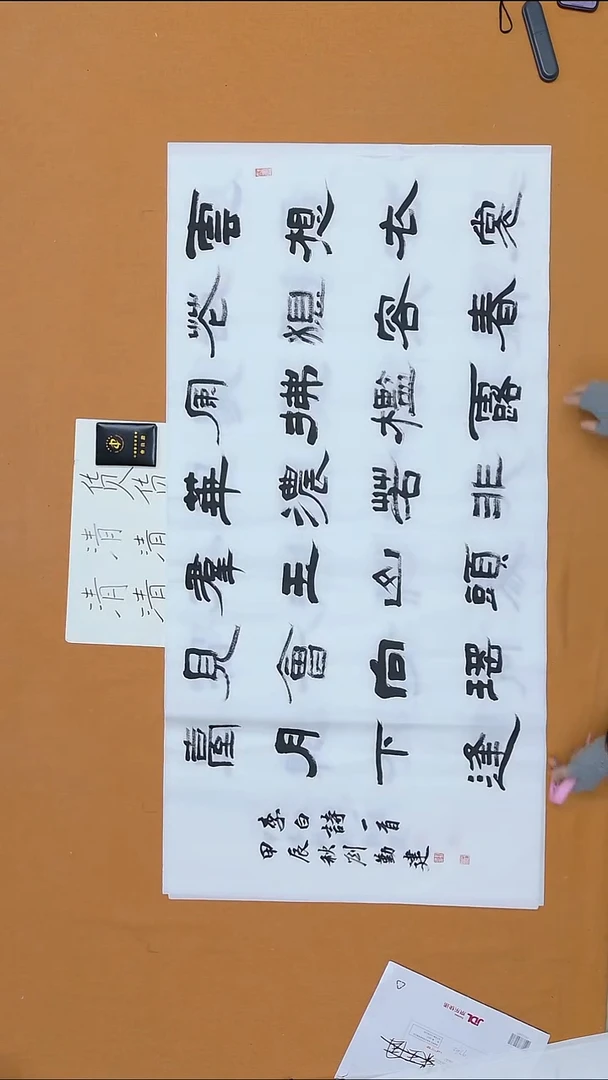 雲想衣裳
花想容春
風拂檻露
華濃若非
羣玉山頭
見會向瑤
臺月下逢
李白詩一首
甲辰秋刘勤建
货货
清清
清清
JDL 京东快递